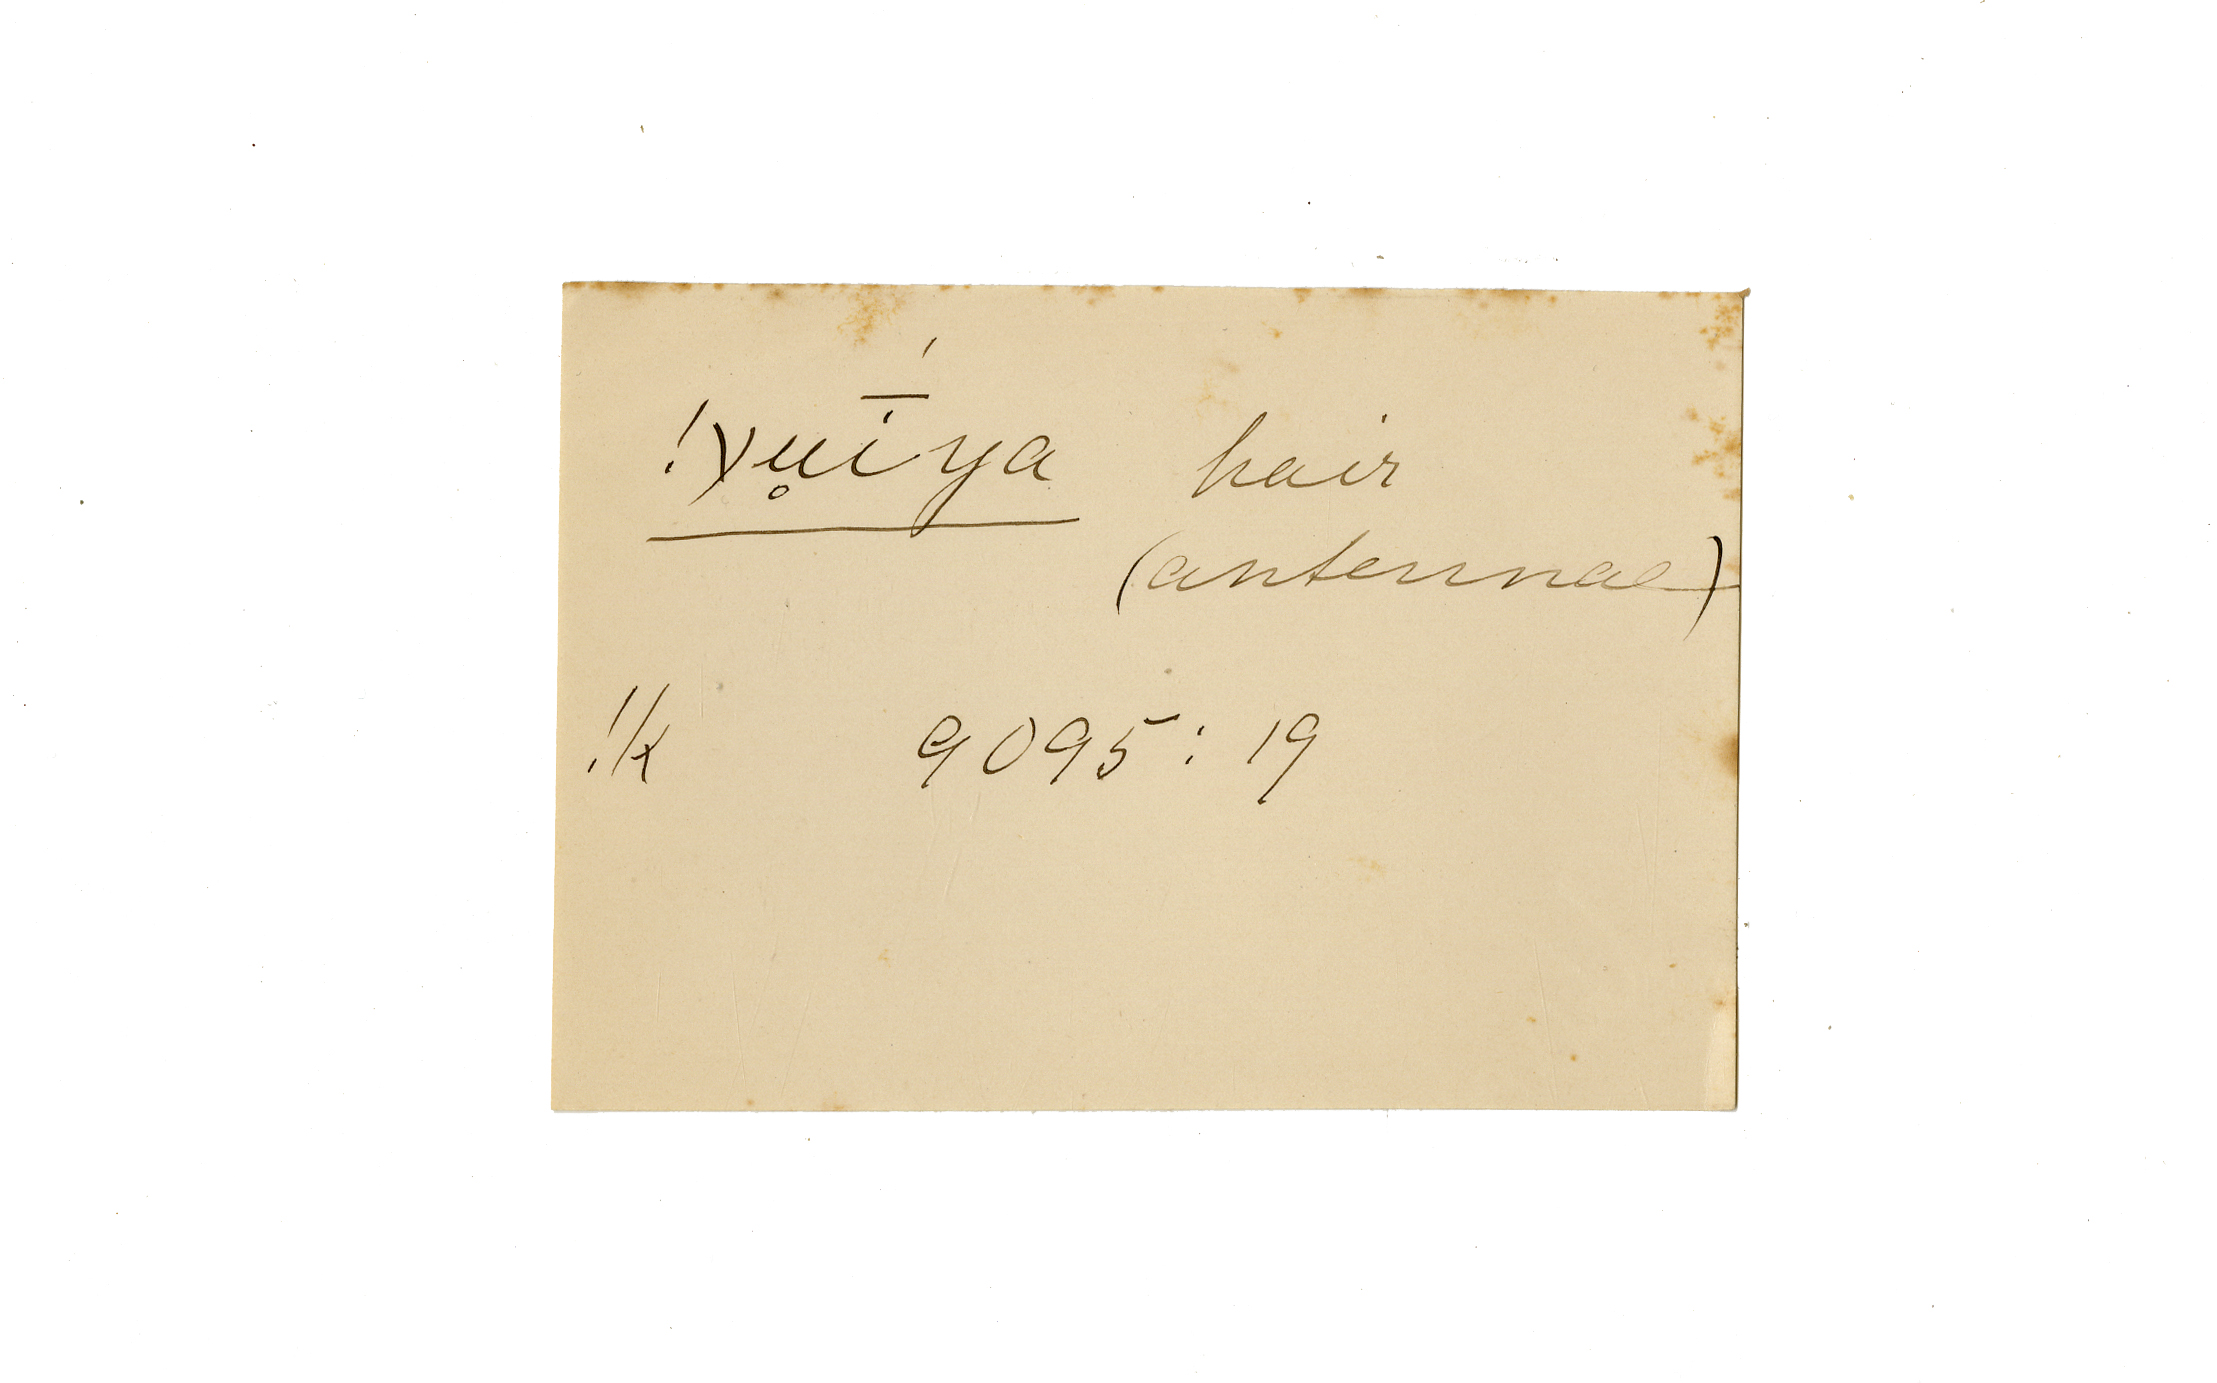 !χu̥ī́ya hair
(antennae)
!k 9095 : 19